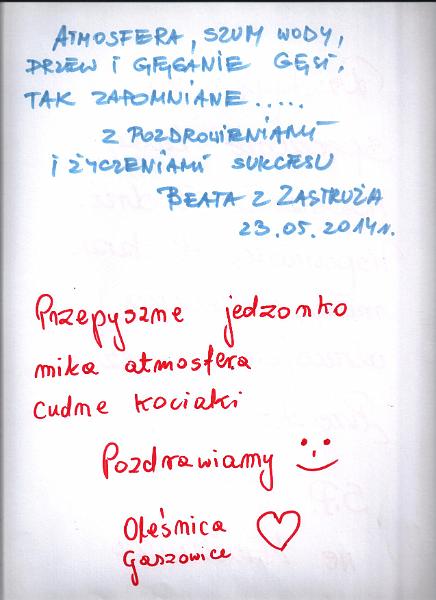 ATMOSFERA, SZUM WODY,
DRZEW I GĘGANIE GĘSI.
TAK ZAPOMNIANE.....
Z POZDROWIENIAMI
I ŻYCZENIAMI SUKCESU
BEATA Z ZASTRUŻA
23.05.2014r.
Przepyszne jedzonko
miła atmosfera
cudne kociaki
Pozdrawiamy
Oleśnica
Gaszowice